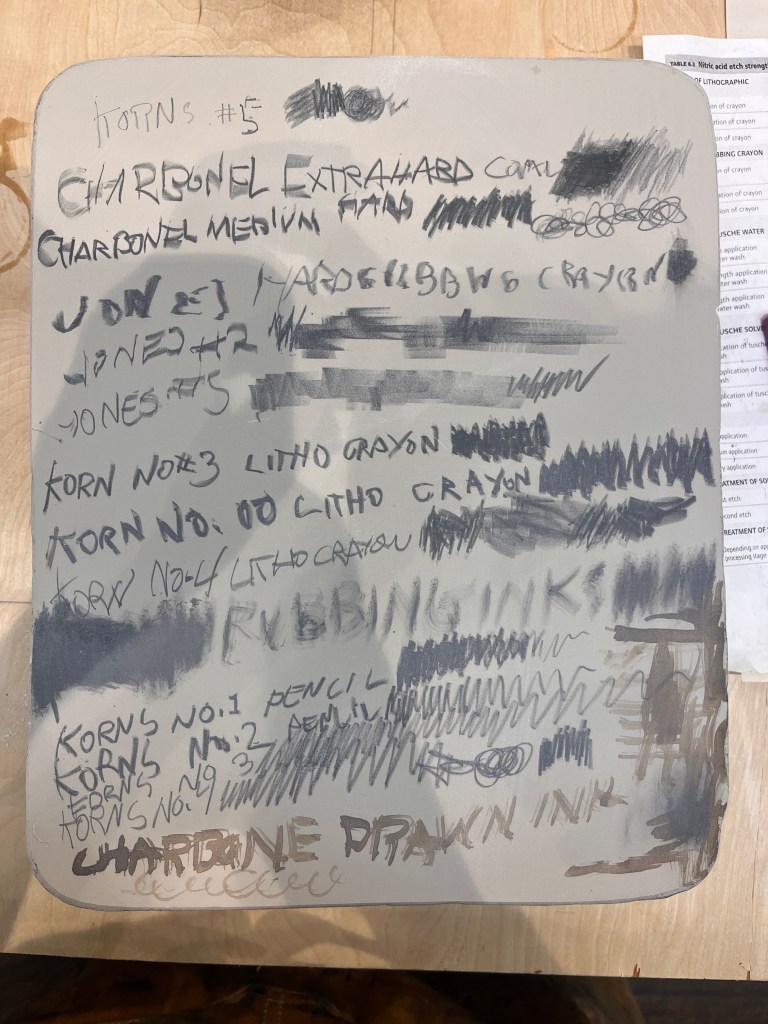 KORNS #5
CHARBONEL EXTRAHARD
CHARBONEL MEDIUM HARD
JONES HARD RUBBING CRAYON
JONES #2
JONES #5
KORN NO#3 LITHO CRAYON
KORN NO. 00 LITHO CRAYON
KORN NO.4 LITHO CRAYON
RUBBING INKS
KORNS NO.1 PENCIL
KORNS No.2 PENCIL
KORNS NO 3
KORNS No.
CHARBONE DRAWN INK
TABLE 6.1 Nitric acid etch strength
OF LITHOGRAPHIC
ion of crayon
ation of crayon
on of crayon
BBING CRAYON
n of crayon
ation of crayon
on of crayon
USCHE WATER
application
er wash
ngth application
ter wash
gth application
ater wash
USCHE SOLV
cation of tusche
plication of tus
ash
plication of tusc
ash
pplication
m application
y application
ATMENT OF SO
st etch
cond etch
REATMENT OF
Depending on app
processing stage